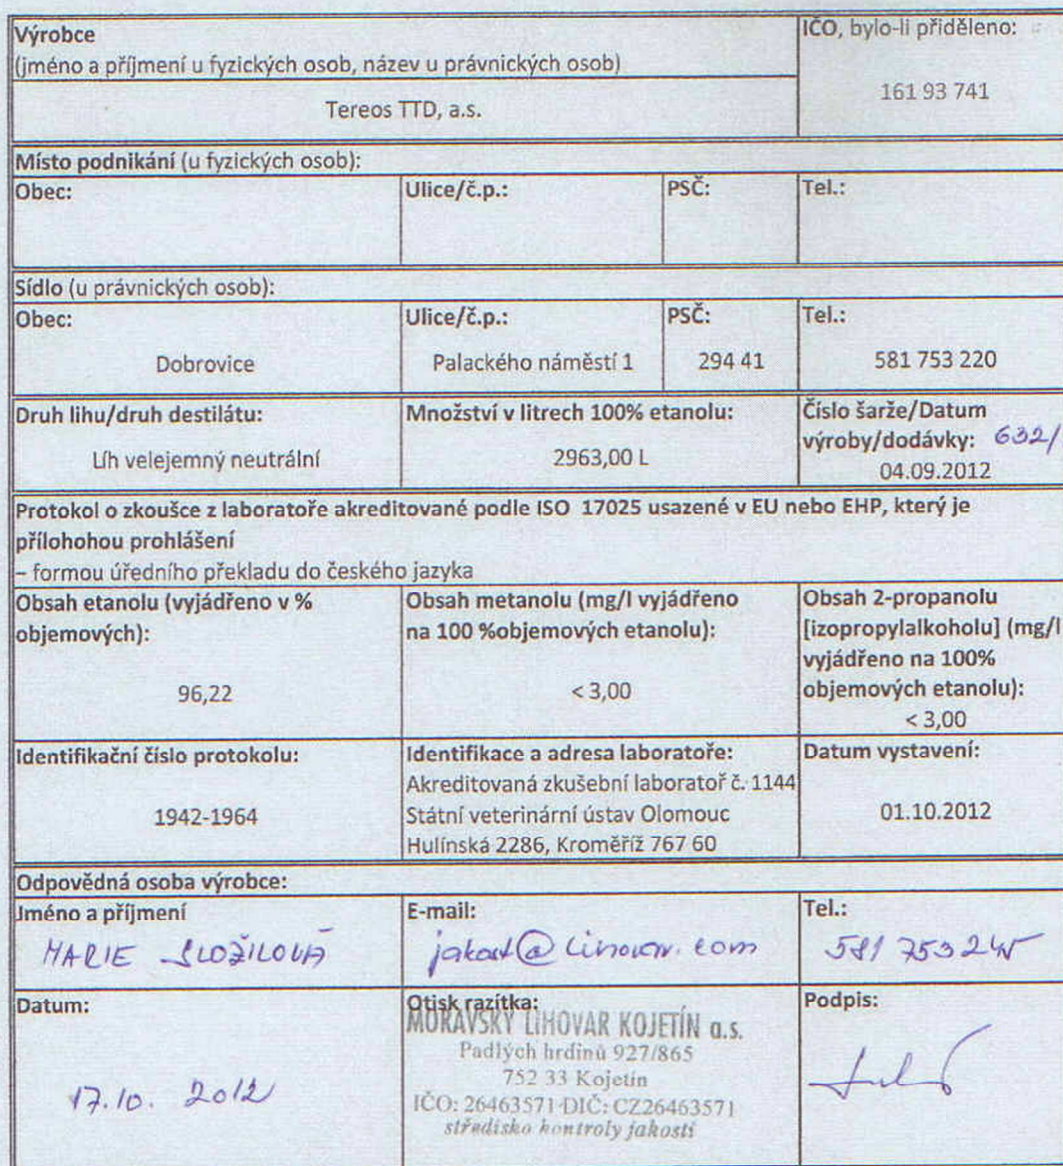 Výrobce
(jméno a příjmení u fyzických osob, název u právnických osob)
Tereos TTD, a.s.
IČO, bylo-li přiděleno:
161 93 741
Místo podnikání (u fyzických osob):
Obec:
Ulice/č.p.:
PSČ:
Tel.:
Sídlo (u právnických osob):
Obec:
Dobrovice
Ulice/č.p.:
Palackého náměstí 1
PSČ:
294 41
Tel.:
581 753 220
Druh lihu/druh destilátu:
Líh velejemný neutrální
Množství v litrech 100% etanolu:
2963,00 L
Číslo šarže/Datum
výroby/dodávky: 632/
04.09.2012
Protokol o zkoušce z laboratoře akreditované podle ISO 17025 usazené v EU nebo EHP, který je
přílohohou prohlášení
– formou úředního překladu do českého jazyka
Obsah etanolu (vyjádřeno v %
objemových):
96,22
Obsah metanolu (mg/l vyjádřeno
na 100 %objemových etanolu):
< 3,00
Obsah 2-propanolu
[izopropylalkoholu] (mg/l
vyjádřeno na 100%
objemových etanolu):
< 3,00
Identifikační číslo protokolu:
1942-1964
Identifikace a adresa laboratoře:
Akreditovaná zkušební laboratoř č. 1144
Státní veterinární ústav Olomouc
Hulínská 2286, Kroměříž 767 60
Datum vystavení:
01.10.2012
Odpovědná osoba výrobce:
Jméno a příjmení
MARIE SLOŽILOVÁ
E-mail:
jakost@lihovar.com
Tel.:
581 753 245
Datum:
17.10. 2012
Otisk razítka:
MORAVSKÝ LIHOVAR KOJETÍN a.s.
Padlých hrdinů 927/865
752 33 Kojetín
IČO: 26463571 DIČ: CZ26463571
středisko kontroly jakosti
Podpis: